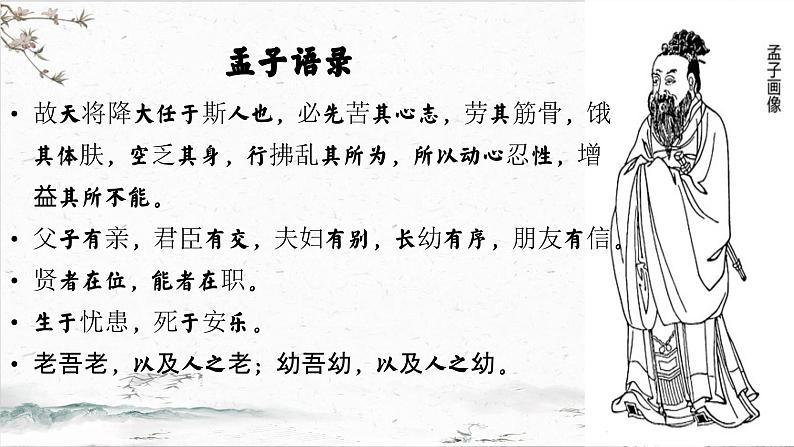 孟子语录
• 故天将降大任于斯人也，必先苦其心志，劳其筋骨，饿
其体肤，空乏其身，行拂乱其所为，所以动心忍性，增
益其所不能。
• 父子有亲，君臣有交，夫妇有别，长幼有序，朋友有信。
• 贤者在位，能者在职。
• 生于忧患，死于安乐。
• 老吾老，以及人之老；幼吾幼，以及人之幼。
孟子画像